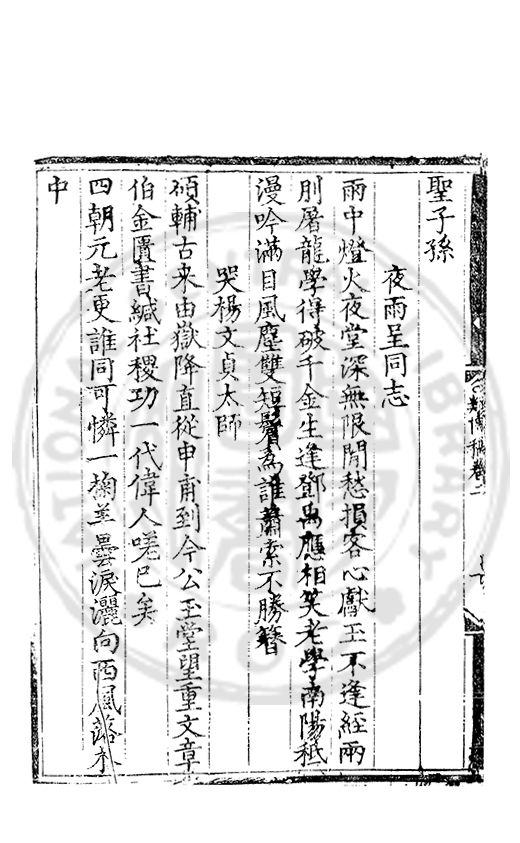 聖子孫
夜雨呈同志
雨中燈火夜堂深無限閒愁損客心獻玉不逢經兩
刖屠龍學得破千金生逢鄧禹應相笑老學南陽秪
漫吟滿目風塵雙短鬢為誰蕭索不勝簪
哭楊文貞太師
碩輔古来由嶽降直從申甫到今公玉堂望重文章
伯金匱書緘社稷功一代偉人嗟已矣
四朝元老更誰同可憐一掬羊曇淚灑向西風落木
中
類博稿卷二